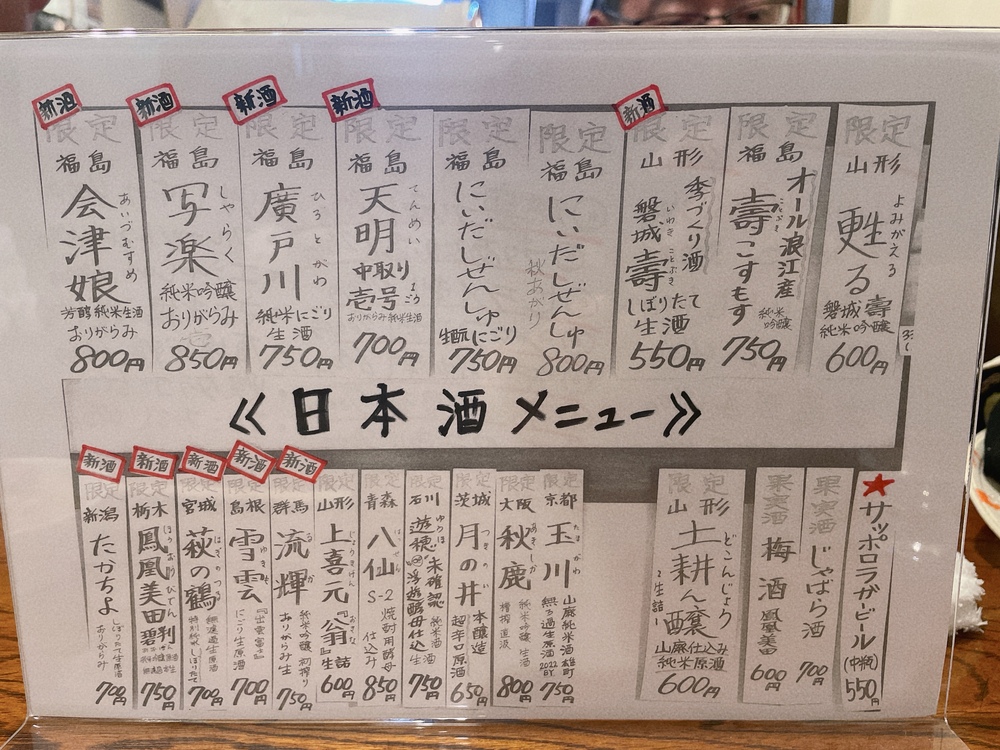 限定
山形
甦る
よみがえる
磐城壽
純米吟醸
600円
限定
福島
オール浪江産
壽こすもす
ことぶき
純米
吟醸
750円
新酒
限定
山形
季づくり酒
磐城壽
いわき ことぶき
しぼりたて
生酒
550円
限定
福島
にいだしぜんしゅ
秋あがり
800円
限定
福島
にいだしぜんしゅ
生酛にごり
750円
新酒
限定
福島
天明
てんめい
中取り
壱号
おりがらみ純米生酒
700円
新酒
限定
福島
廣戸川
ひろとがわ
純米にごり
生酒
750円
新酒
限定
福島
写楽
しゃらく
純米吟醸
おりがらみ
850円
新酒
限定
福島
会津娘
あいづむすめ
芳醇純米生酒
おりがらみ
800円
≪日本酒メニュー≫
★サッポロラガービール
(中瓶)
550円
果実酒
じゃばら酒
700円
果実酒
梅酒
鳳凰美田
600円
限定
山形
土耕ん醸
どこんじょう
生詰
山廃仕込み
純米原酒
600円
限定
京都
玉川
たまがわ
山廃純米酒雄町
無ろ過生原酒2022
750円
限定
大阪
秋鹿
あきしか
純米吟醸 生酒
槽搾直汲
800円
限定
茨城
月の井
つきのい
本醸造
超辛口原酒
650円
限定
石川
遊穂
ゆうほ
未確認
浮遊酵母仕込
純米酒 生酒
750円
限定
青森
八仙
はっせん
S-2
焼酎用酵母
仕込み
850円
限定
山形
上喜元
じょうきげん
『翁』
おきな
生詰
600円
新酒
限定
群馬
流輝
るか
純米吟醸 初搾り
おりがらみ生
750円
新酒
限定
島根
雪雲
ゆきぐも
『出雲富士』
にごり生原酒
700円
新酒
限定
宮城
萩の鶴
はぎのつる
無濾過生原酒
特別純米しぼりたて
700円
新酒
限定
栃木
鳳凰美田
ほうおうびでん
碧判
750円
新酒
限定
新潟
たかちよ
しぼりたて生原酒
おりがらみ
700円